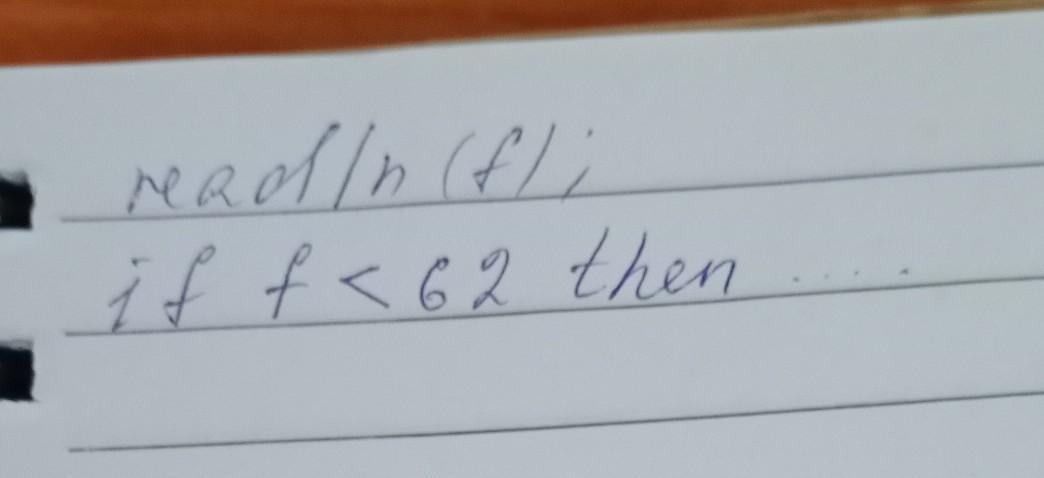 readln (f);
if f < 62 then .....